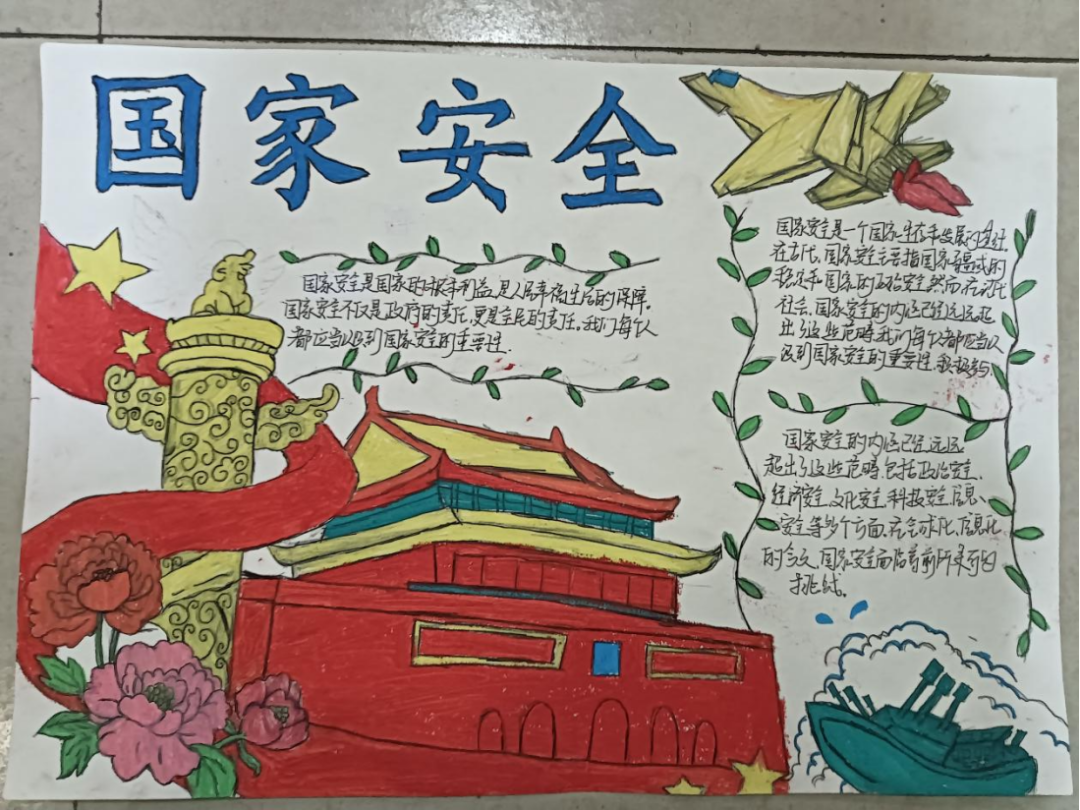 国家安全
国家安全是国家的根本利益,是人民幸福生活的保障。
国家安全不仅是政府的责任,更是全民的责任。我们每个人
都应当认识到国家安全的重要性.
国家安全是一个国家生存和发展的基社
在古代,国家安全主要指国家疆域的
稳定和国家的政治安全然而,在现代
社会,国家安全的内涵已经远远超
出了这些范畴我们每个人都应当认
识到国家安全的重要性,积极参与
国家安全的内涵已经远远
超出了这些范畴,包括政治安全.
经济安全,文化安全,科技安全,信息、
安全等多个方面,在全球化,信息化
的今天,国家安全面临着前所未有的
挑战.